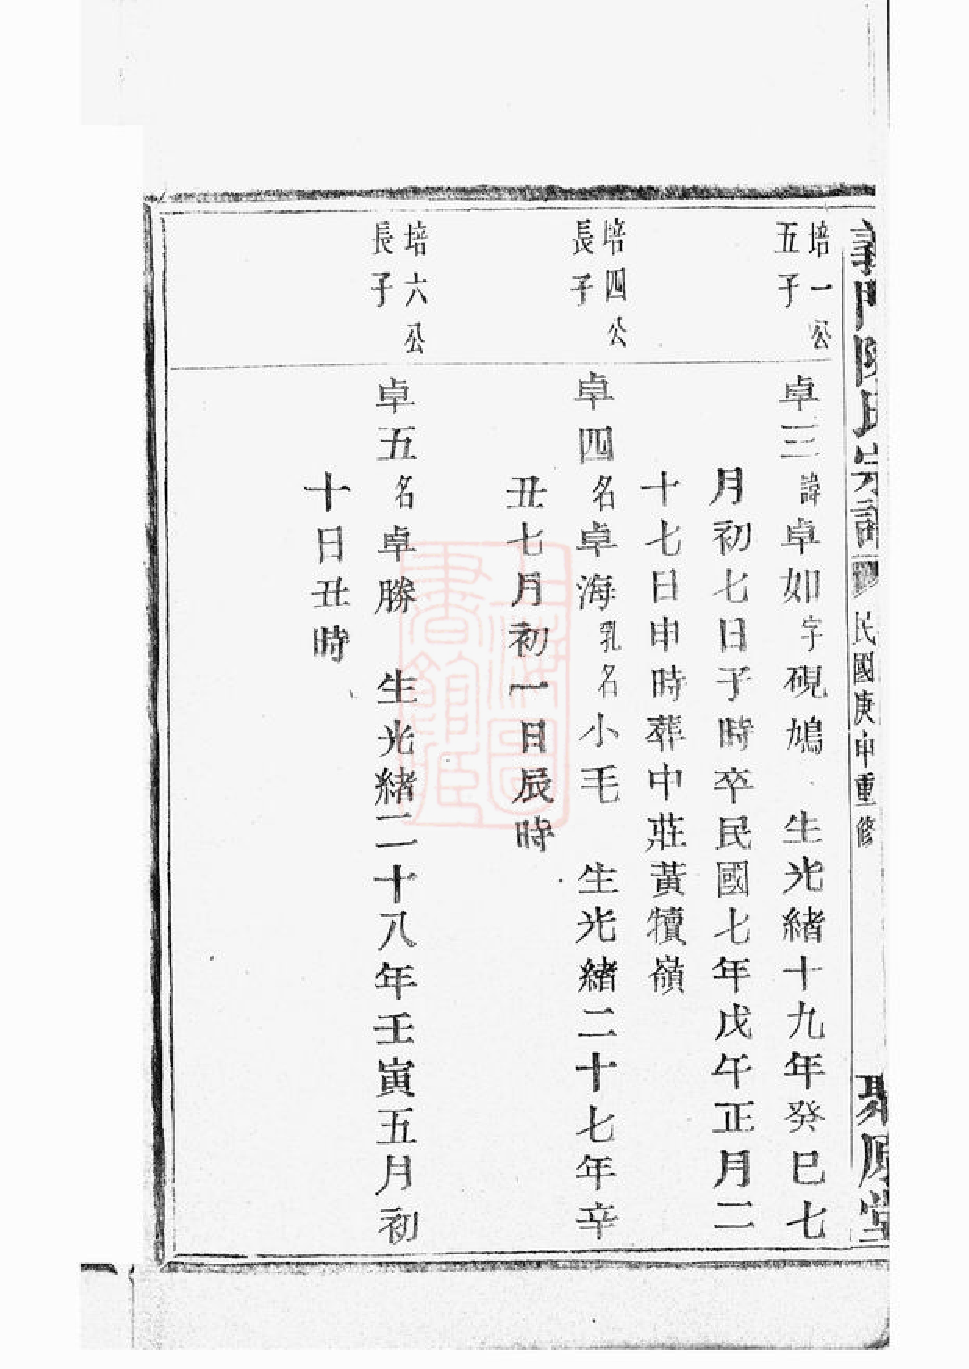 義門陳氏宗譜
民國庚申重修
聚原堂
培一公
五子
卓三諱卓如字硯鳩 生光緒十九年癸巳七
月初七日子時卒民國七年戊午正月二
十七日申時葬中莊黃犢嶺
培四公
長子
卓四名卓海乳名小毛 生光緒二十七年辛
丑七月初一日辰時
培六公
長子
卓五名卓勝 生光緒二十八年壬寅五月初
十日丑時